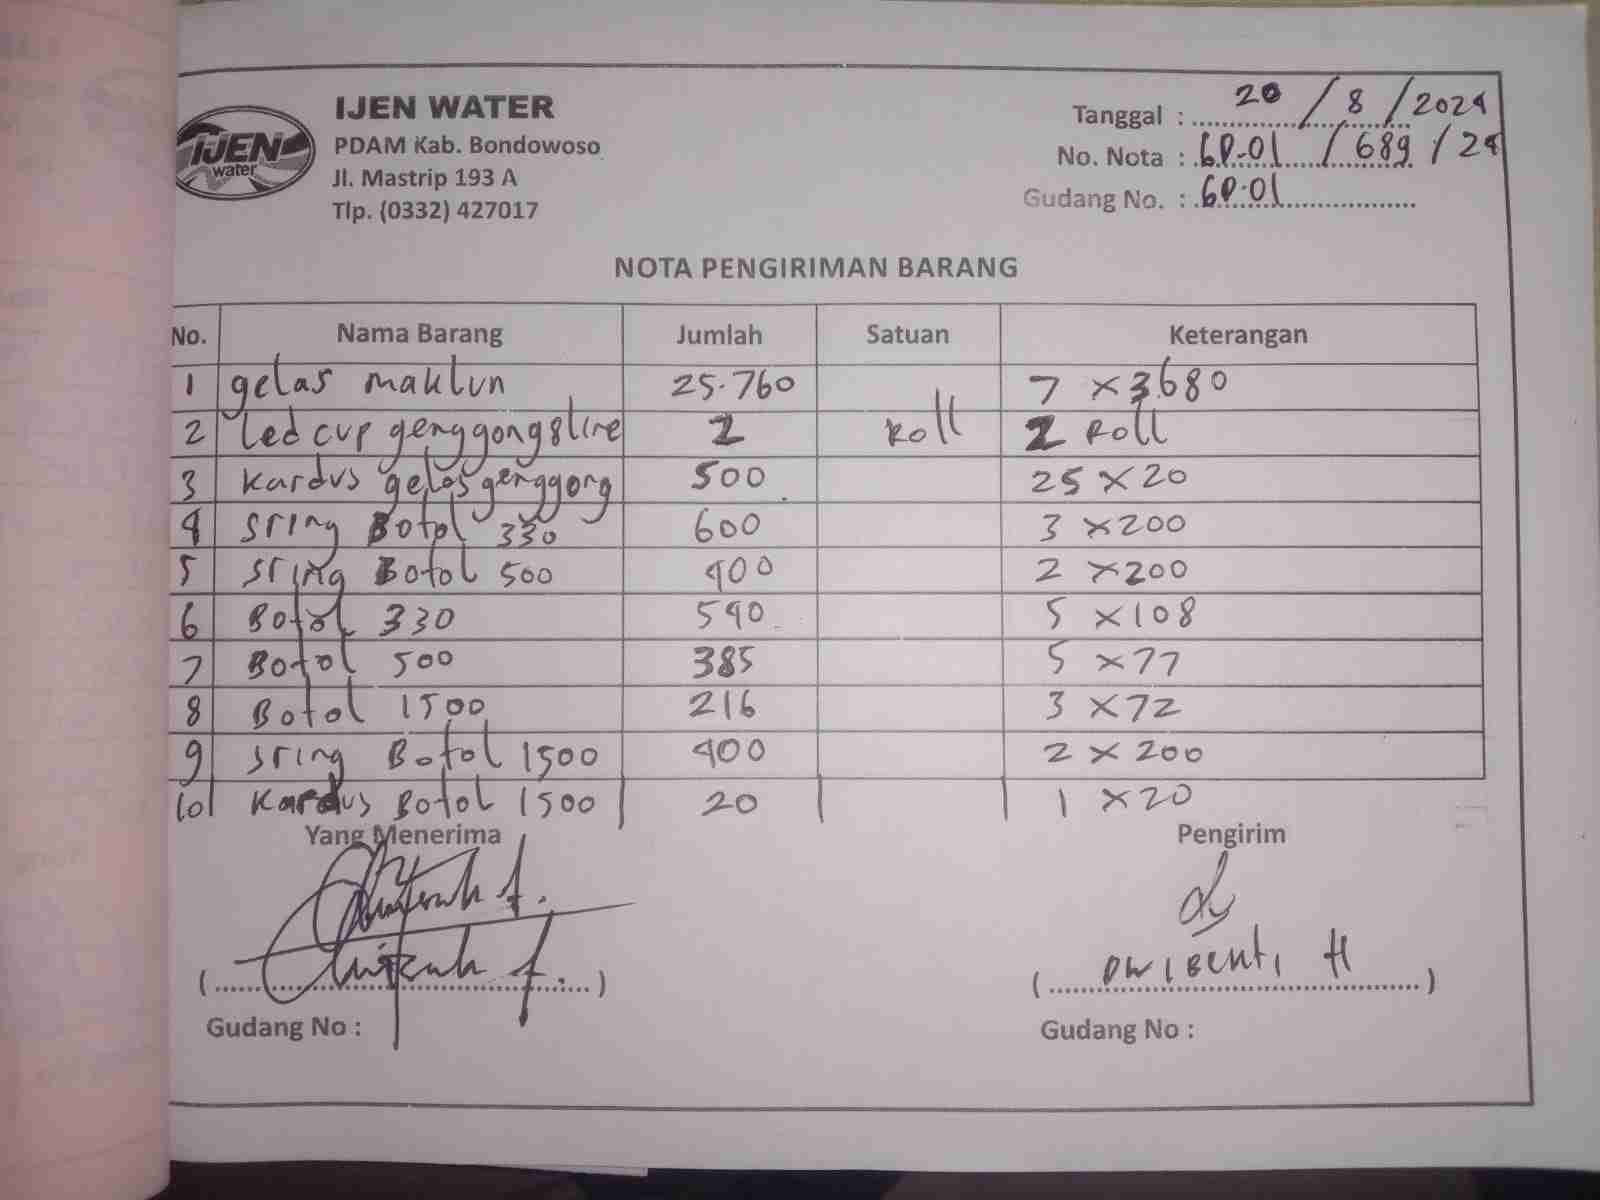 IJEN WATER
PDAM Kab. Bondowoso
Jl. Mastrip 193 A
Tlp. (0332) 427017
IJEN
water
Tanggal : 20 / 8 / 2024
No. Nota : GD.01 / 689 / 24
Gudang No. : GD.01
NOTA PENGIRIMAN BARANG
No. Nama Barang Jumlah Satuan Keterangan
1 gelas maklun 25.760 7 x 3680
2 Led cup genggong 8 line 2 Roll 2 Roll
3 Kardus gelas genggong 500 25 x 20
4 Sring Botol 330 600 3 x 200
5 Sring Botol 500 400 2 x 200
6 Botol 330 540 5 x 108
7 Botol 500 385 5 x 77
8 Botol 1500 216 3 x 72
9 Sring Botol 1500 400 2 x 200
10 Kardus Botol 1500 20 1 x 20
Yang Menerima Pengirim
(.......) ( Dwi Benti H )
Gudang No : Gudang No :